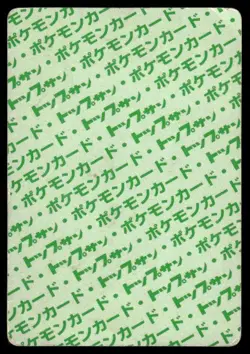 ポケモンカード・トップサン
トップサン・ポケモンカード
ポケモンカード・トップサン・ポケモンカード
トップサン・ポケモンカード・トップサン
ポケモンカード・トップサン・ポケモンカード
トップサン・ポケモンカード・トップサン
ポケモンカード・トップサン・ポケモンカード
トップサン・ポケモンカード・トップサン
ポケモンカード・トップサン・ポケモンカード
トップサン・ポケモンカード・トップサン
ポケモンカード・トップサン・ポケモンカード
トップサン・ポケモンカード・トップサン
ポケモンカード・トップサン